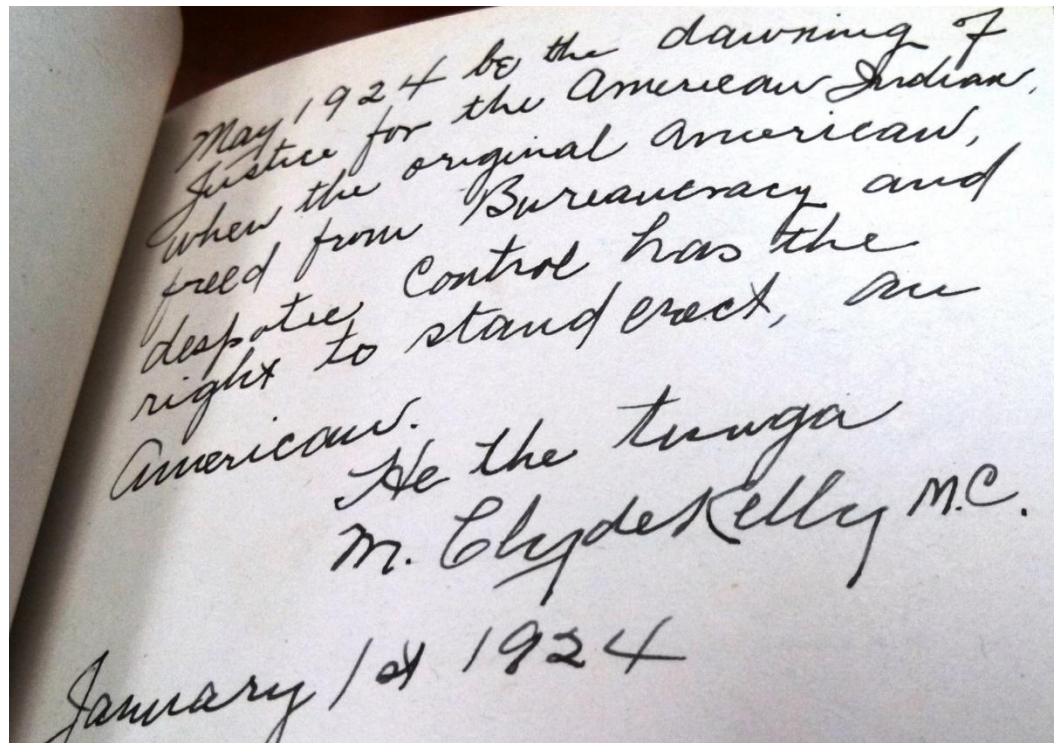 May 1924 be the dawning of
Justice for the American Indian,
when the original American,
freed from Bureaucracy and
despotic control has the
right to stand erect, an
American.
He the tunga
M. Clyde Kelly M.C.
January 1st 1924